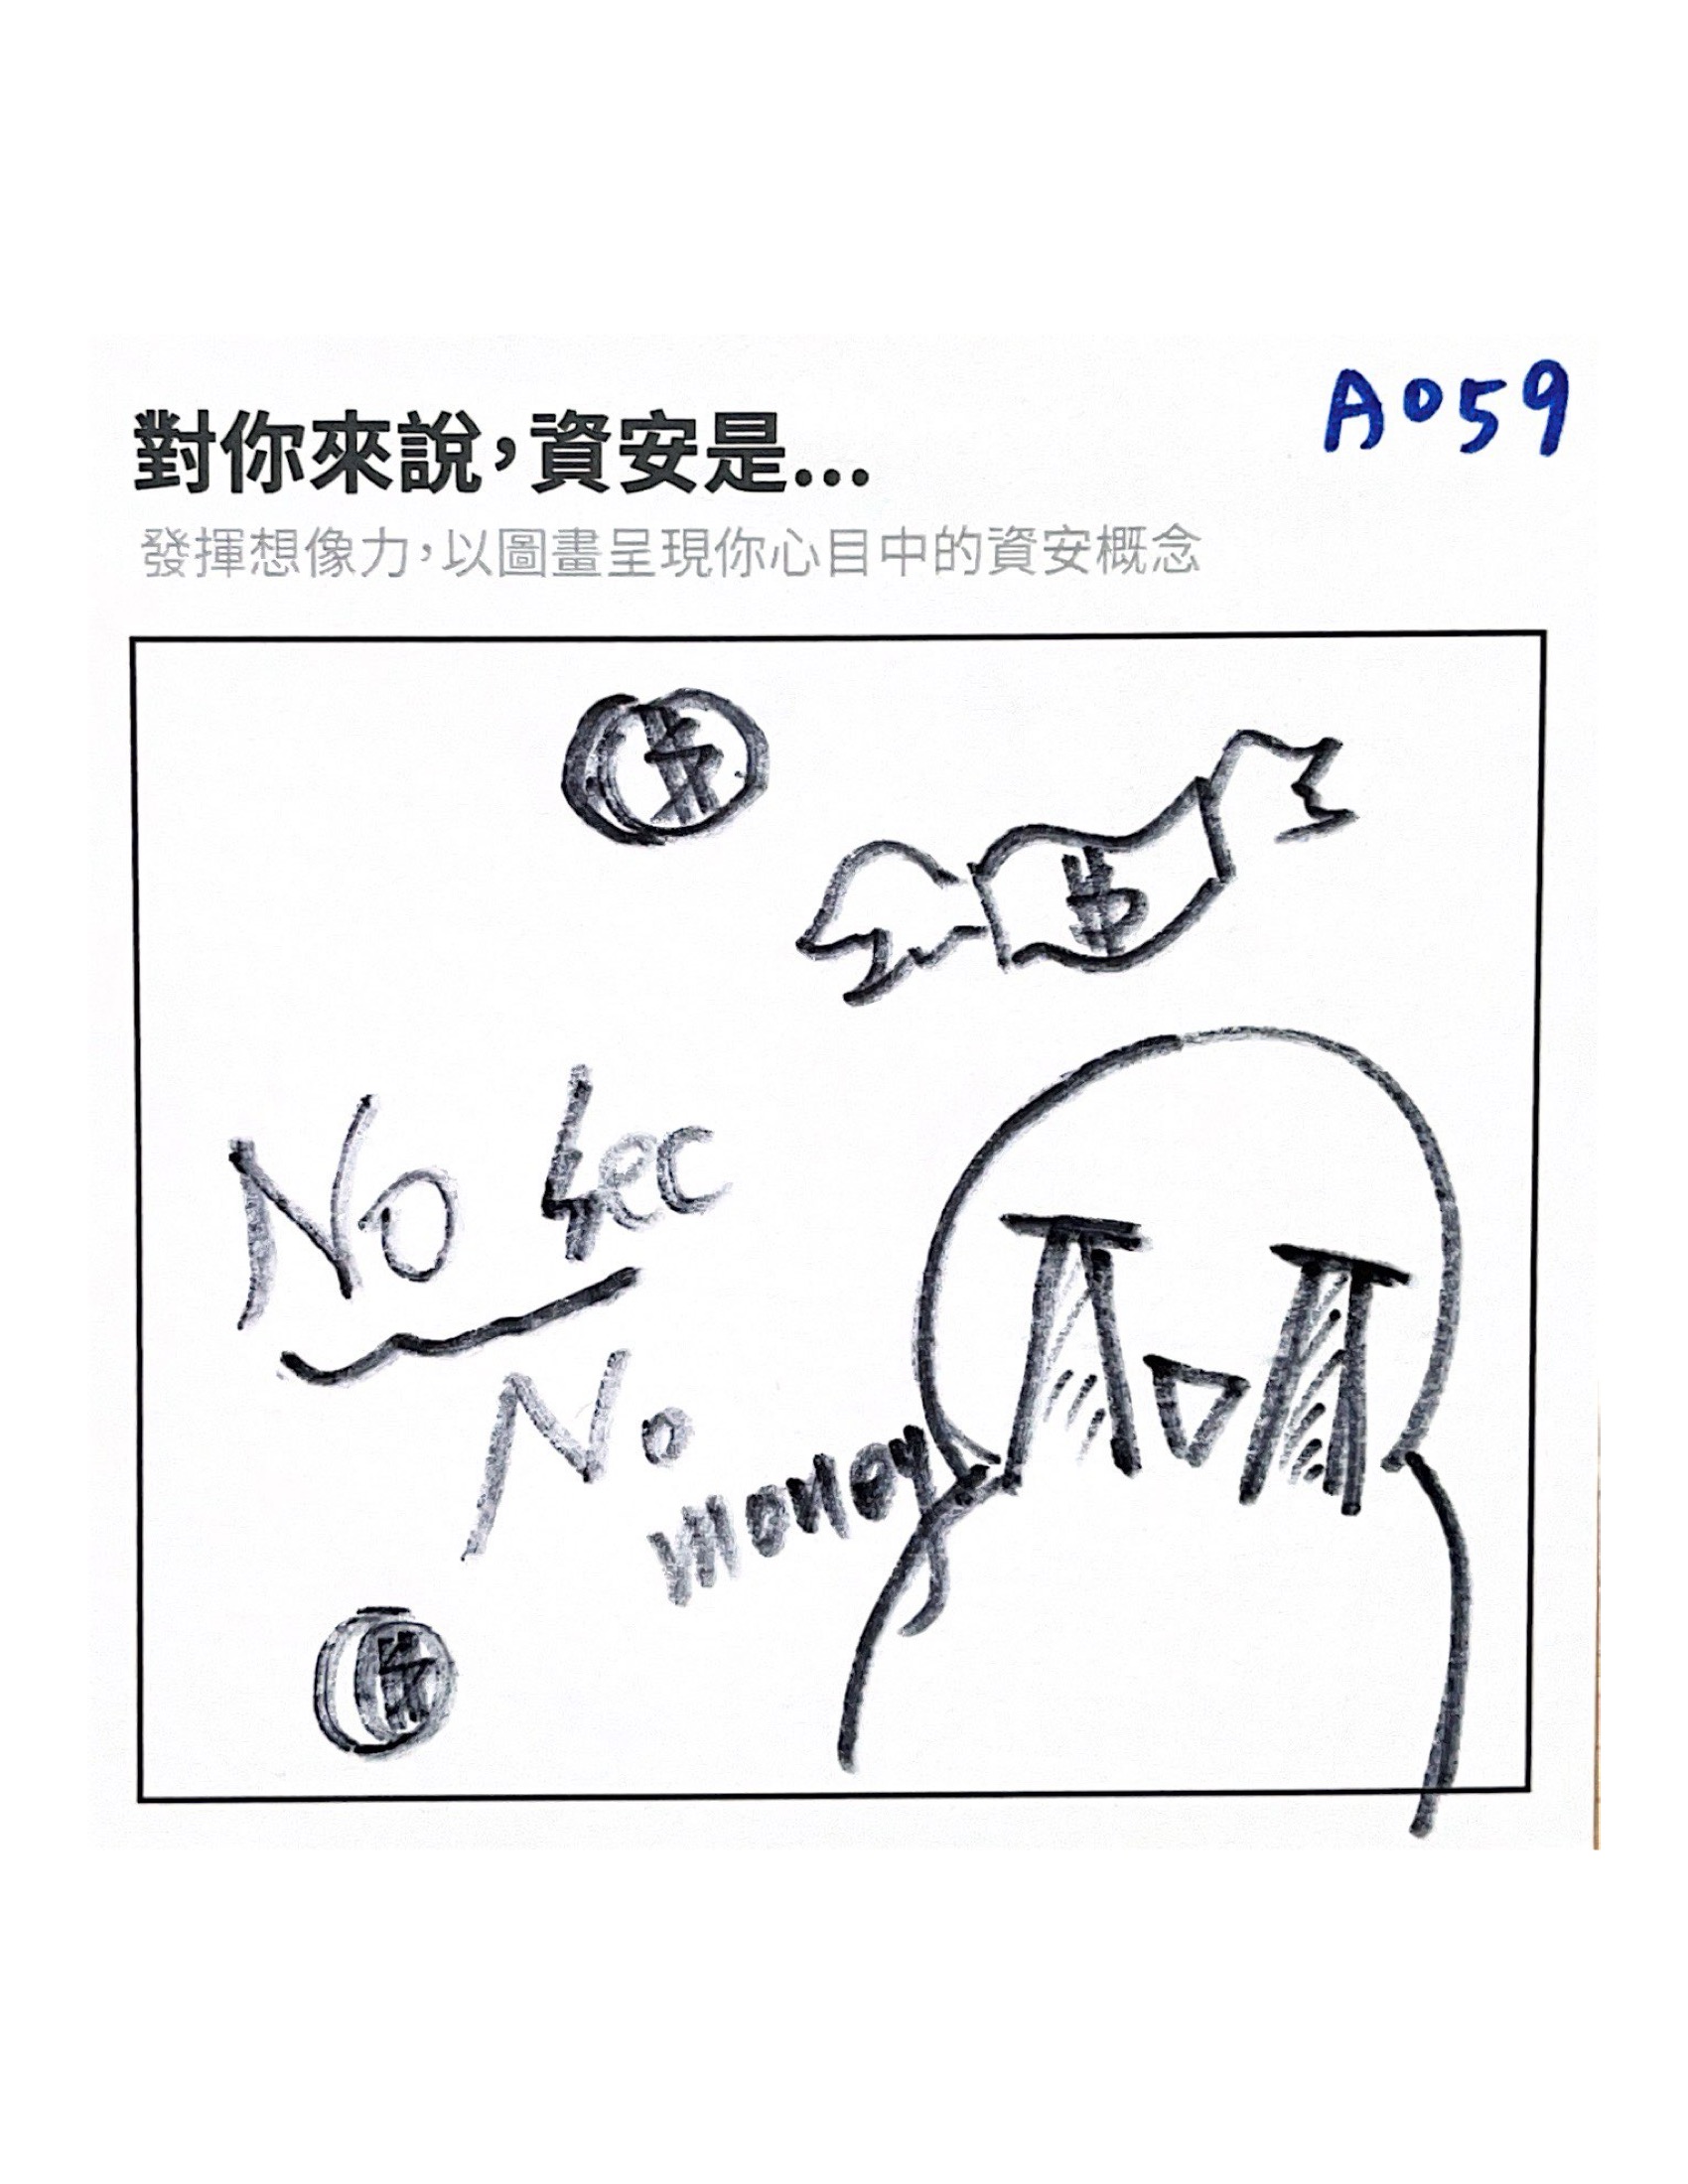 A059
對你來說，資安是...
發揮想像力，以圖畫呈現你心目中的資安概念
$
$
No Sec
No
money
$